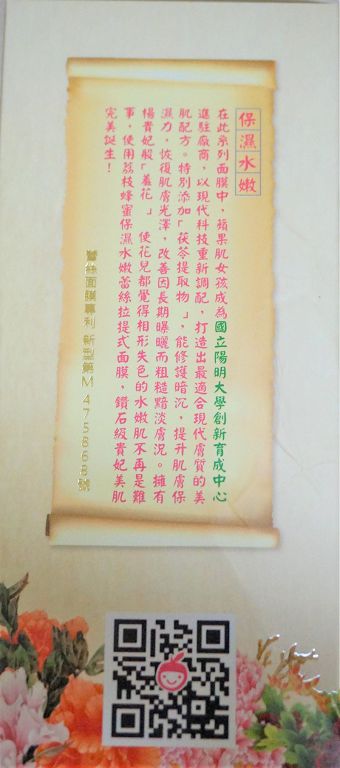 保濕水嫩
在此系列面膜中，蘋果肌女孩成為國立陽明大學創新育成中心
進駐廠商，以現代科技重新調配，打造出最適合現代膚質的美
肌配方。特別添加「茯苓提取物」，能修護暗沉，提升肌膚保
濕力，恢復肌膚光澤，改善因長期曝曬而粗糙黯淡膚況。擁有
楊貴妃般「羞花」，使花兒都覺得相形失色的水嫩肌不再是難
事，使用荔枝蜂蜜保濕水嫩蕾絲拉提式面膜，鑽石級貴妃美肌
完美誕生！
蕾絲面膜專利 新型第M475868號